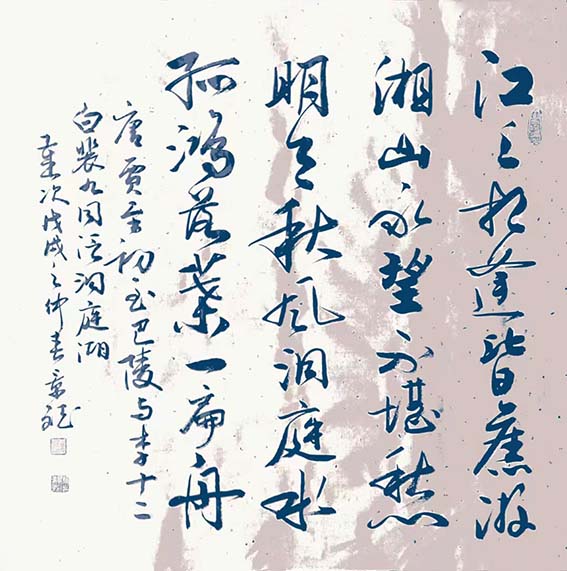 江上相逢皆舊游
湘山永望不堪愁
明月秋风洞庭水
孤鴻落葉一扁舟
唐賈至初至巴陵与李十二
白裴九同泛洞庭湖
歲次戊戌之仲春